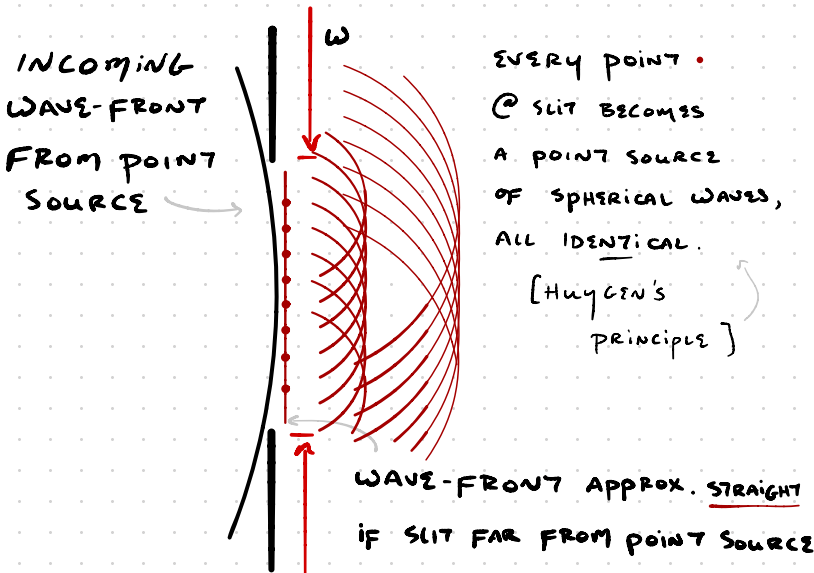 INCOMING
WAVE-FRONT
FROM POINT
SOURCE
W
EVERY POINT •
@ SLIT BECOMES
A POINT SOURCE
OF SPHERICAL WAVES,
ALL IDENTICAL.
[HUYGEN'S
PRINCIPLE]
WAVE-FRONT APPROX. STRAIGHT
IF SLIT FAR FROM POINT SOURCE